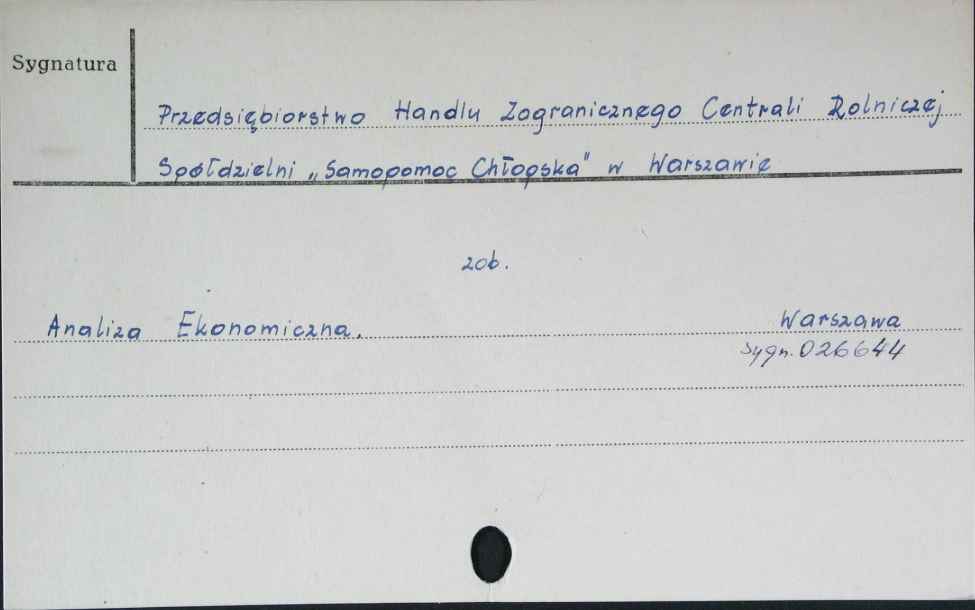 Sygnatura
Przedsiębiorstwo Handlu Zagranicznego Centrali Rolniczej
Spółdzielni „Samopomoc Chłopska" w Warszawie
zob.
Analiza Ekonomiczna. Warszawa
Sygn. 026644